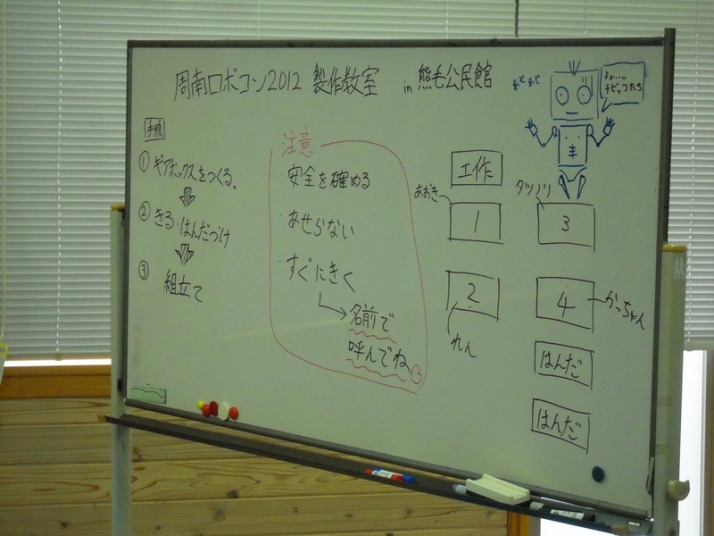 周南ロボコン2012 製作教室 in 熊毛公民館
手順
① ギアボックスをつくる。
② きる・はんだづけ
③ 組立て
注意
・安全を確める
・あせらない
・すぐにきく
名前で
呼んでね
工作
あおき
1
2
れん
タツノリ
3
4
かっちゃん
はんだ
はんだ
チビッコたち